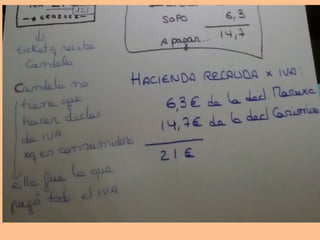 IVA
(21)
SOPO 6,3
A pagar... 14,7
ticket q recibe
Candela
HACIENDA RECAUDA x IVA:
6,3€ de la decl Maruxa
14,7€ de la decl
21€
Candela no
tiene que
hacer declar
de IVA
xq en consumidora
ella fue la que
pagó todo el IVA